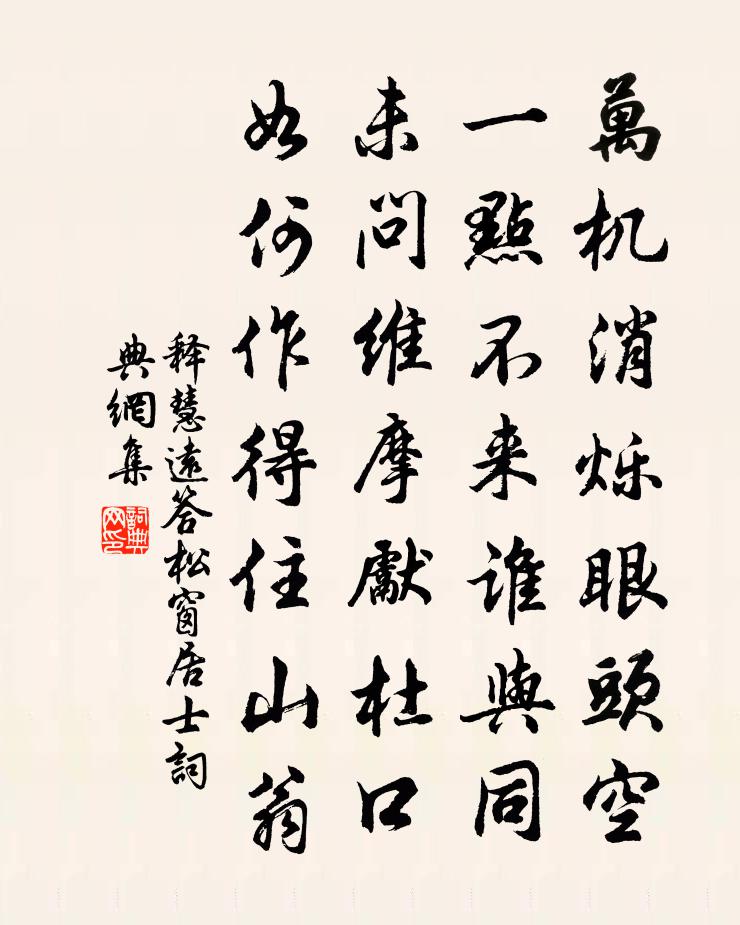 萬机消烁眼頭空
一點不来谁與同
未問维摩獻杜口
如何作得住山翁
释慧遠答松窗居士詞
典網集
詞典网印